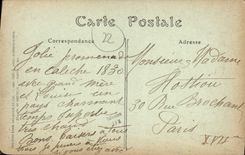 Carte Postale
Correspondance
Adresse
22
Jolie promenade
en calèche 1830
avec grand mère
et Louise un
pays charmant
temps superbe
très chaud
Bons baisers à tous
Monsieur Madame
Hostiou
30 Rue Brochant
Paris
XVII